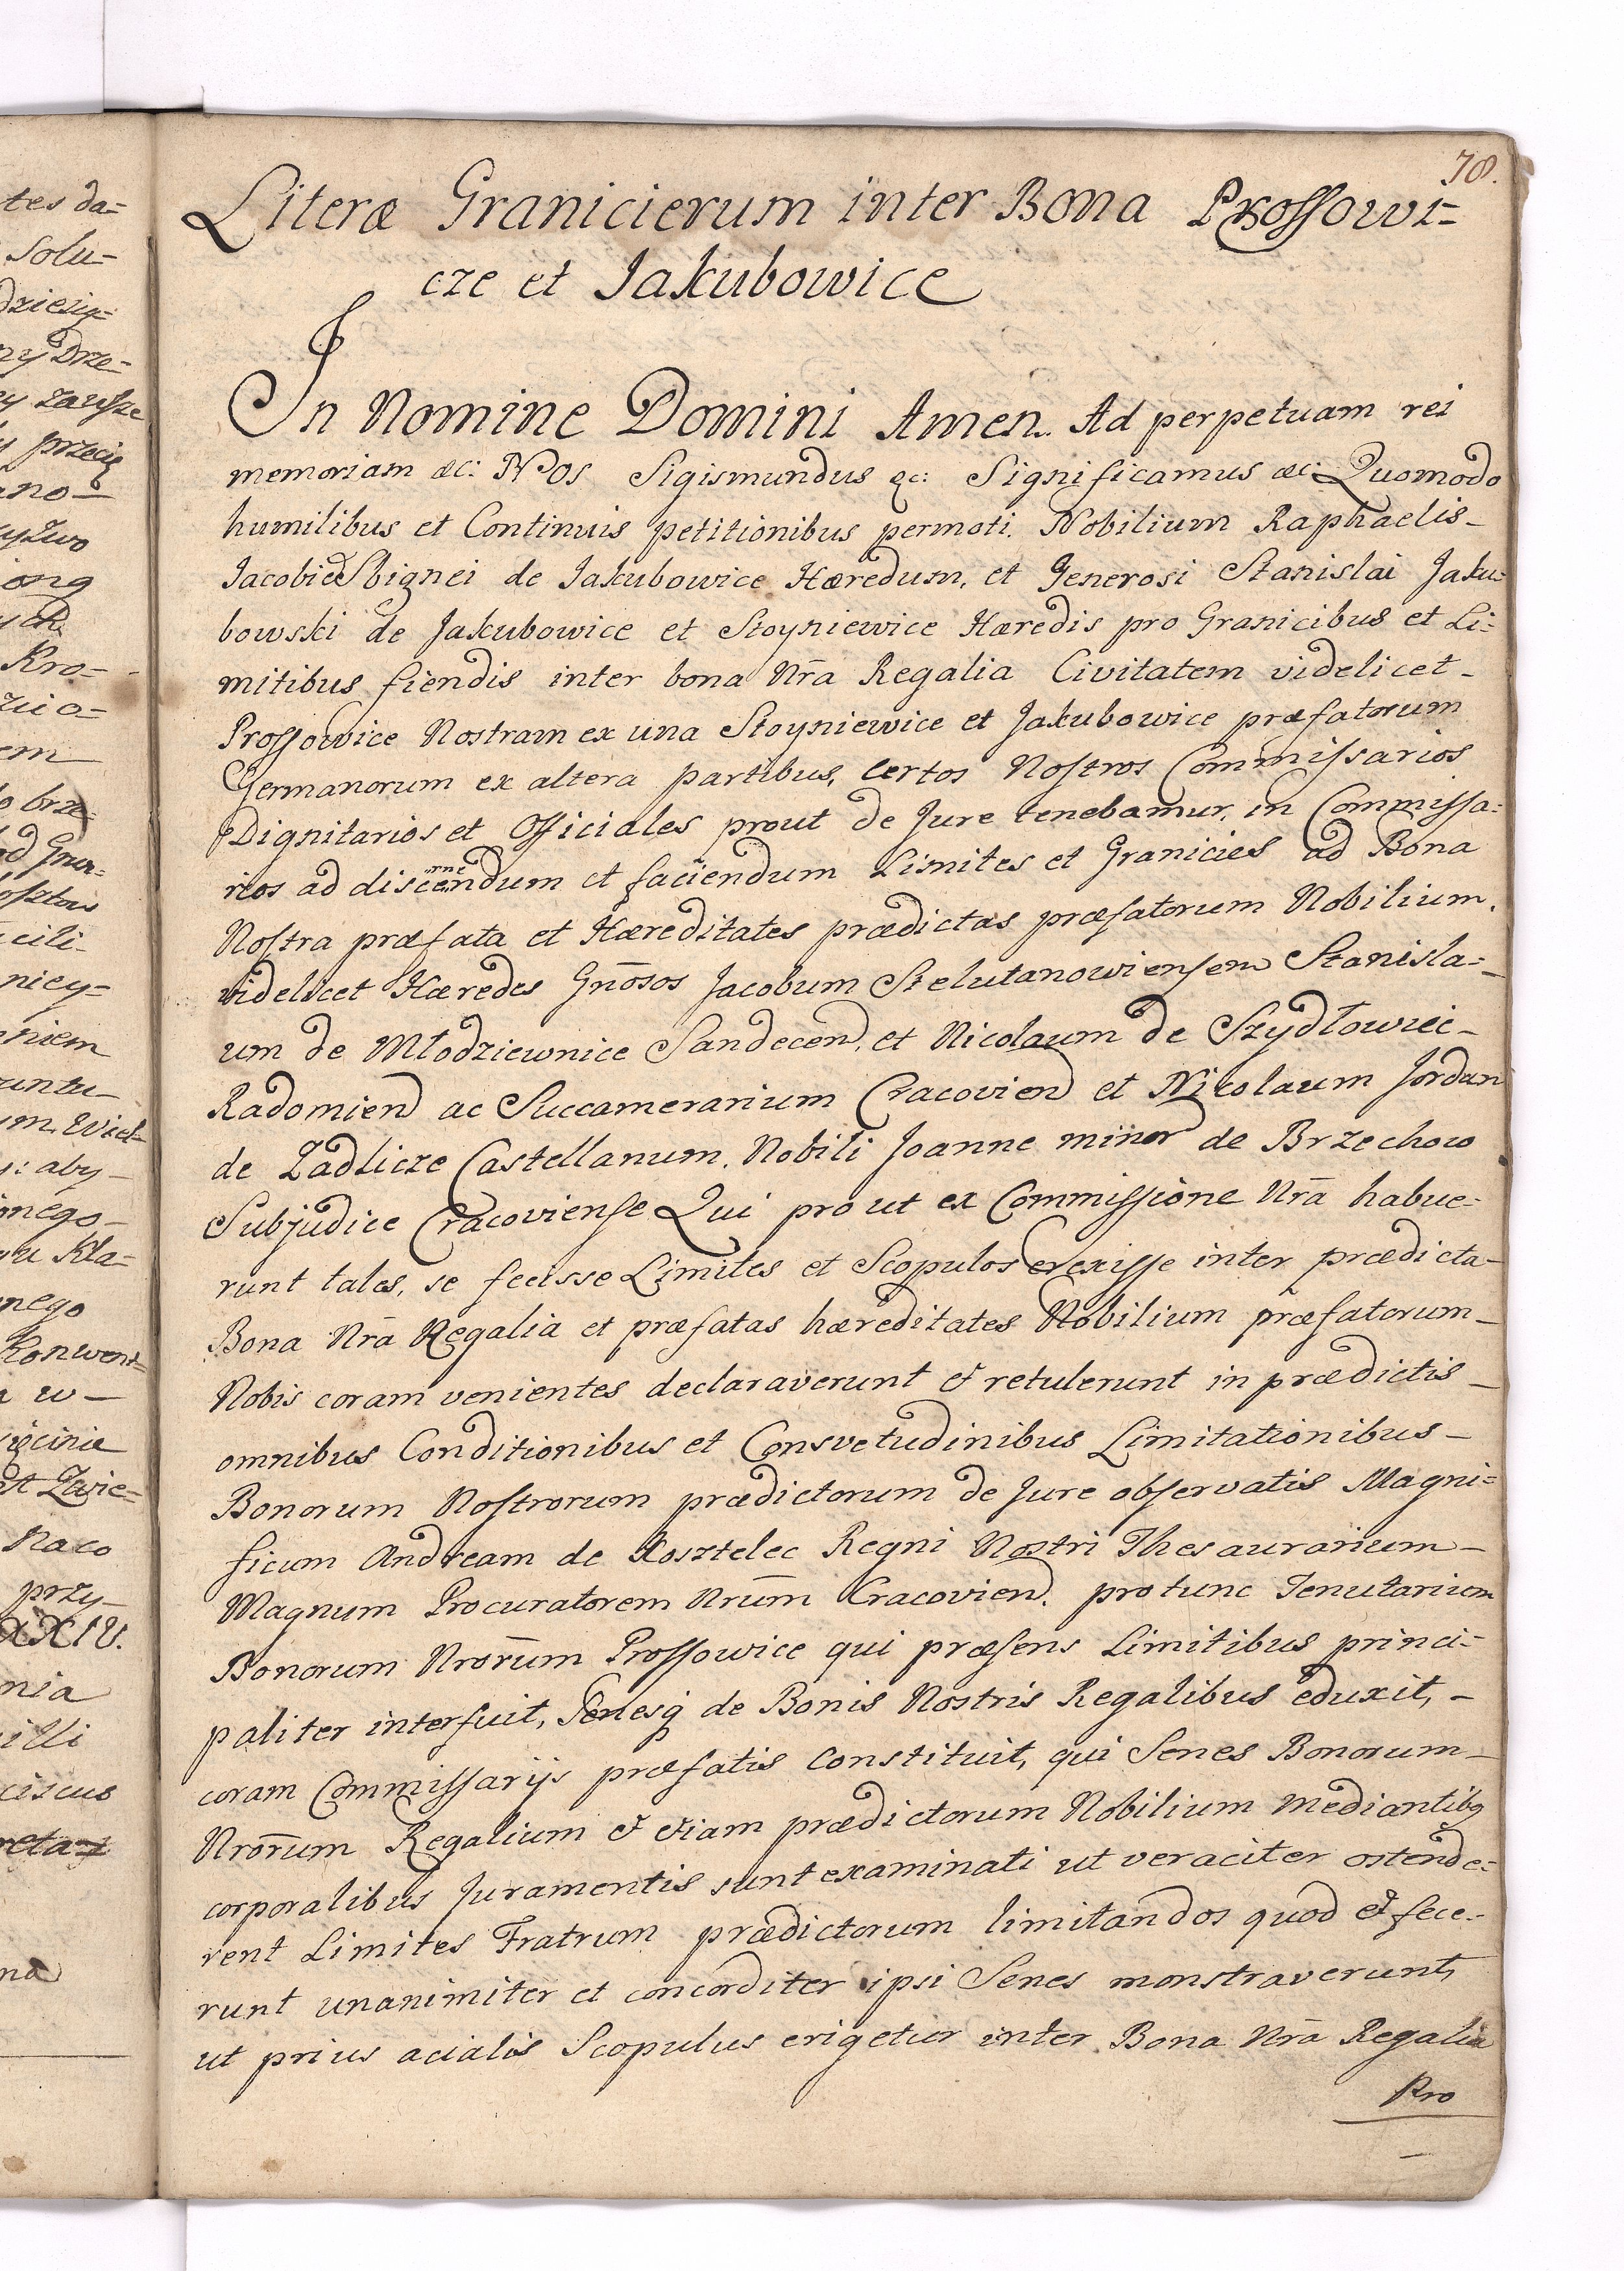 78.
Literæ Granicierum inter Bona Prossowi=
cze et Jakubowice
In Nomine Domini Amen. Ad perpetuam rei
memoriam &c: Nos Sigismundus &c: Significamus &c: Quomodo
humilibus et Continuis petitionibus permoti. Nobilium Raphaelis
Jacobi et Sbignei de Jakubowice Hæredum, et Generosi Stanislai Jaku=
bowski de Jakubowice et Stoyniewice Hæredis pro Granicibus et Li=
mitibus fiendis inter bona Nrā Regalia Civitatem videlicet
Prossowice Nostram ex una Stoyniewice et Jakubowice præfatorum
Germanorum ex altera partibus, certos Nostros Commissarios
Dignitarios et Officiales prout de Jure tenebamur, in Commissa=
rios ad discernendum et faciendum Limites et Granicies ad Bona
Nostra præfata et Hæreditates prædictas præfatorum Nobilium.
videlicet Hæredes Gnōsos Jacobum Sielutanowiensem Stanisla=
um de Młodziewnice Sandecen, et Nicolaum de Szydłowiec
Radomien ac Succamerarium Cracovien et Nicolaum Jordan
de Zadlicze Castellanum. Nobili Joanne minor de Brzechow
Subjudice Cracoviense Qui prout ex Commissione Nrā habue=
runt tales, se fecisse Limites et Scopulos erexisse inter prædicta
Bona Nrā Regalia et præfatas hæreditates Nobilium præfatorum
Nobis coram venientes declaraverunt & retulerunt in prædictis
omnibus Conditionibus et Consvetudinibus Limitationibus
Bonorum Nostrorum prædictorum de Jure observatis Magni=
ficum Andream de Kosztelec Regni Nostri Thesaurarium
Magnum Procuratorem Nrūm Cracovien. protunc Tenutarium
Bonorum Nrorūm Prossowice qui præsens Limitibus princi=
paliter interfuit, Senesq de Bonis Nostris Regalibus eduxit,
coram Commissarijs præfatis constituit, qui Senes Bonorum
Nrorūm Regalium & etiam prædictorum Nobilium mediantibq
corporalibus Juramentis sunt examinati ut veraciter ostende=
rent Limites Fratrum prædictorum limitandos quod & fece=
runt unanimiter et concorditer ipsi Senes monstraverunt,
ut prius acialis Scopulus erigetur inter Bona Nrā Regalia
Pro